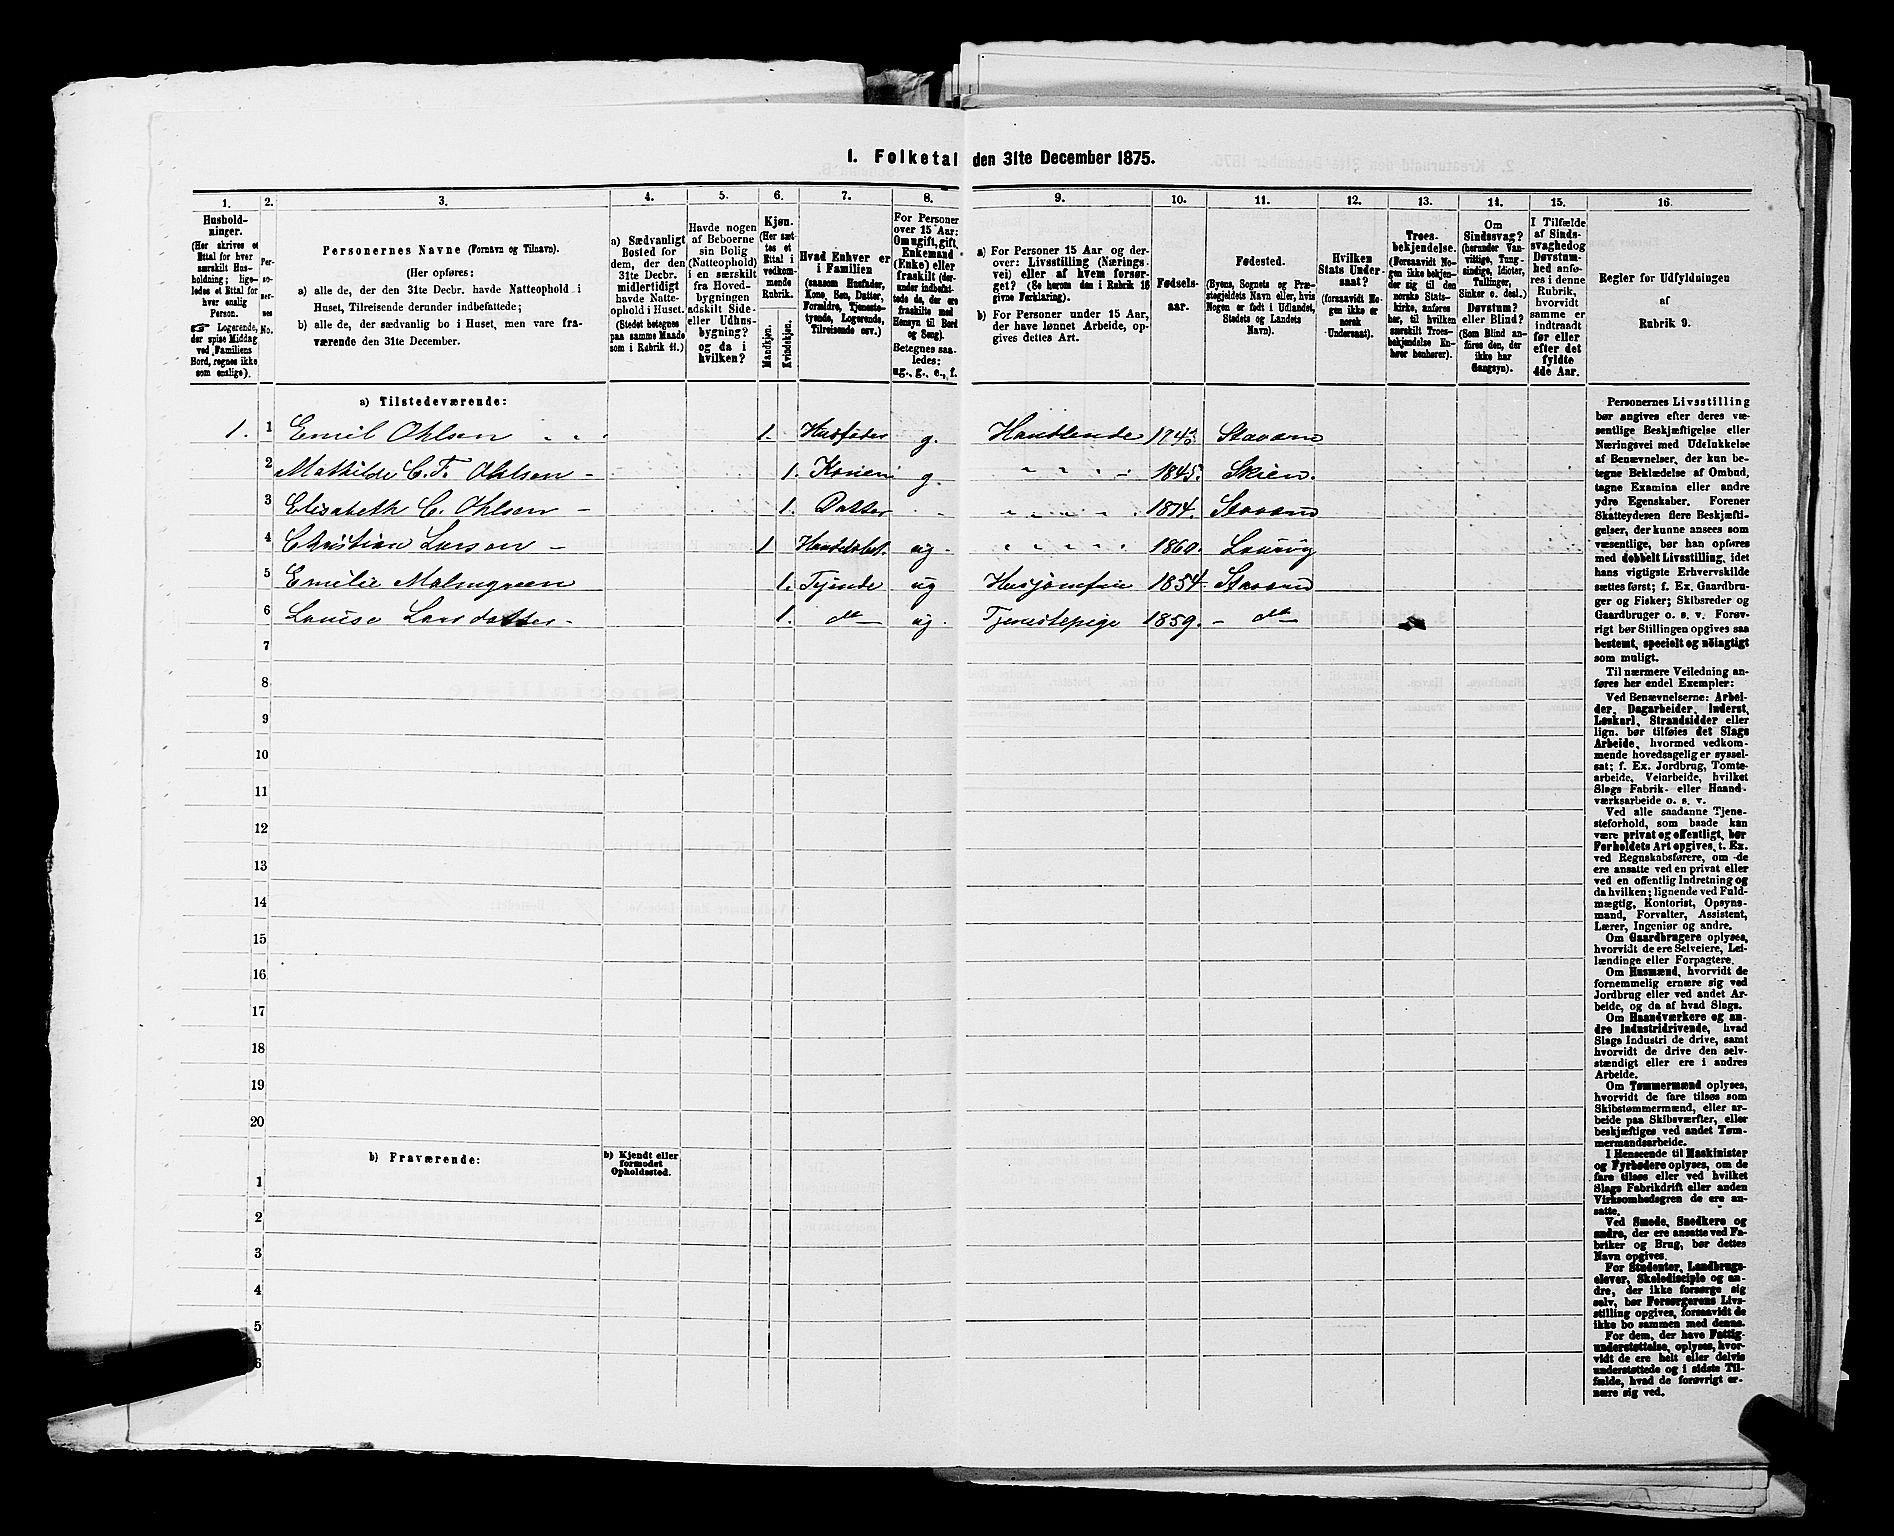 1. Folketal den 31te December 1875.
1. 2. 3. 4. 5. 6. 7. 8. 9. 10. 11. 12. 13. 14. 15. 16.
Hushold-
ninger.
(Her skrives et
Ettal for hver
særskilt Hus-
holdning; lige-
ledes et Ettal for
hver enslig
Person.
☞ Logerende,
der spise Middag
ved Familiens
Bord, regnes ikke
som enslige).
Per-
so-
ner-
nes
No.
Personernes Navne (Fornavn og Tilnavn).
(Her opføres:
a) alle de, der den 31te Decbr. havde Natteophold i
Huset, Tilreisende derunder indbefattede;
b) alle de, der sædvanlig bo i Huset, men vare fra-
værende den 31te December.
a) Sædvanligt
Bosted for
dem, der den
31te Decbr.
midlertidigt
havde Natte-
ophold i Huset.
(Stedet betegnes
paa samme Maade
som i Rubrik 11.)
Havde nogen
af Beboerne
sin Bolig
(Natteophold)
i en særskilt
fra Hoved-
bygningen
adskilt Side-
eller Udhus-
bygning?
og da i
hvilken?
Kjøn.
(Her sæt-
tes et
Ettal i
vedkom-
mende
Rubrik.
Mandkjøn.
Kvindekjøn.
Hvad Enhver er
i Familien
(saasom Husfader,
Kone, Søn, Datter,
Forældre, Tjeneste-
tyende, Logerende,
Tilreisende osv.)
For Personer
over 15 Aar:
Om ugift, gift,
Enkemand
(Enke) eller
fraskilt (der-
under indbefat-
tede de, der ere
fraskilte med
Hensyn til Bord
og Seng).
Betegnes saa-
ledes:
ug., g., e., f.
a) For Personer 15 Aar og der-
over: Livsstilling (Nærings-
vei) eller af hvem forsør-
get? (Se herom den i Rubrik 16
givne Forklaring).
b) For Personer under 15 Aar,
der have lønnet Arbeide, op-
gives dettes Art.
Fødsels-
aar.
Fødested.
(Byens, Sognets og Præ-
stegjeldets Navn eller, hvis
Nogen er født i Udlandet,
Stedets og Landets
Navn).
Hvilken
Stats Under-
saat?
(forsaavidt No-
gen ikke er
norsk
Undersaat).
Troes-
bekjendelse.
(Forsaavidt No-
gen ikke bekjen-
der sig til den
norske Stats-
kirke, anføres
her, til hvilken
særskilt Troes-
bekjendelse En-
hver henhører).
Om
Sindssvag?
(herunder Van-
vittige, Tung-
sindige, Idioter,
Tullinger,
Sinker o. desl.)
Døvstum?
eller Blind?
(Som Blind an-
føres den, der
ikke har
Gangsyn).
I Tilfælde
af Sinds-
svaghed og
Døvstum-
hed anfø-
res i denne
Rubrik,
hvorvidt
samme er
indtraadt
før eller
efter det
fyldte
4de Aar.
Regler for Udfyldningen
af
Rubrik 9.
a) Tilstedeværende:
1. 1 Emil Ohlsen 1. Husfader g. Handlende Staværn
2 Mathilde C. F. Ohlsen - 1. Konen g. " " " 1845. Skien.
3 Elisabeth C. Ohlsen - 1. Datter " " " 1874. Staværn
4 Christian Larsen - 1 ug. " " " 1860. Laurvig
5 Emilie Malmgreen 1. Tjende ug Husjomfru 1854. Staværn
6 Louise Larsdatter - 1. do ug. Tjenestepige 1859. - do
7
8
9
10
11
12
13
14
15
16
17
18
19
20
b) Fraværende:
b) Kjendt eller
formodet
Opholdssted.
1
2
3
4
5
6
Personernes Livsstilling
bør angives efter deres væ-
sentlige Beskjæftigelse eller
Næringsvei med Udelukkelse
af Benævnelser, der kun be-
tegne Beklædelse af Ombud,
tagne Examina eller andre
ydre Egenskaber. Forener
Skatteyderen flere Beskjæfti-
gelser, der kunne ansees som
væsentlige, bør han opføres
med dobbelt Livsstilling, idet
hans vigtigste Erhvervskilde
sættes først; f. Ex. Gaardbru-
ger og Fisker; Skibsreder og
Gaardbruger o. s. v. Forøv-
rigt bør Stillingen opgives saa
bestemt, specielt og nöiagtigt
som muligt.
Til nærmere Veiledning an-
føres her endel Exempler:
Ved Benævnelserne: Arbei-
der, Dagarbeider, Inderst,
Løskarl, Strandsidder eller
lign. bør tilføies det Slags
Arbeide, hvormed vedkom-
mende hovedsagelig er syssel-
sat; f. Ex. Jordbrug, Tomte-
arbeide, Veiarbeide, hvilket
Slags Fabrik- eller Haand-
værksarbeide o. s. v.
Ved alle saadanne Tjene-
steforhold, som baade kan
være privat og offentligt, bør
Forholdets Art opgives, t. Ex.
ved Regnskabsførere, om de
ere ansatte ved en privat eller
ved en offentlig Indretning og
da hvilken; lignende ved Fuld-
mægtig, Kontorist, Opsyns-
mand, Forvalter, Assistent,
Lærer, Ingeniør og andre.
Om Gaardbrugere oplyses,
hvorvidt de ere Selveiere, Lei-
lændinge eller Forpagtere.
Om Husmænd, hvorvidt de
fornemmelig ernære sig ved
Jordbrug eller ved andet Ar-
beide, og da af hvad Slags.
Om Haandværkere og an-
dre Industridrivende, hvad
Slags Industri de drive, samt
hvorvidt de drive den selv-
stændigt eller ere i andres
Arbeide.
Om Tømmermænd oplyses,
hvorvidt de fare tilsøs som
Skibstømmermænd, eller ar-
beide paa Skibsværfter, eller
beskjæftiges ved andet Tøm-
mermandsarbeide.
I Henseende til Maskinister
og Fyrbødere oplyses, om de
fare tilsøs eller ved hvilket
Slags Fabrikdrift eller anden
Virksomhedsgren de ere an-
satte.
Ved Smede, Snedkere og
andre, der ere ansatte ved Fa-
briker og Brug, bør dettes
Navn opgives.
For Studenter, Landbrugs-
elever, Skoledisciple og an-
dre, der ikke forsørge sig
selv, bør Forsørgerens Livs-
stilling opgives, forsaavidt de
ikke bo sammen med denne.
For dem, der have Fattig-
understøttelse, oplyses, hvor-
vidt de ere helt eller delvis
understøttede og i sidste Til-
fælde, hvad de forøvrigt er-
nære sig ved.